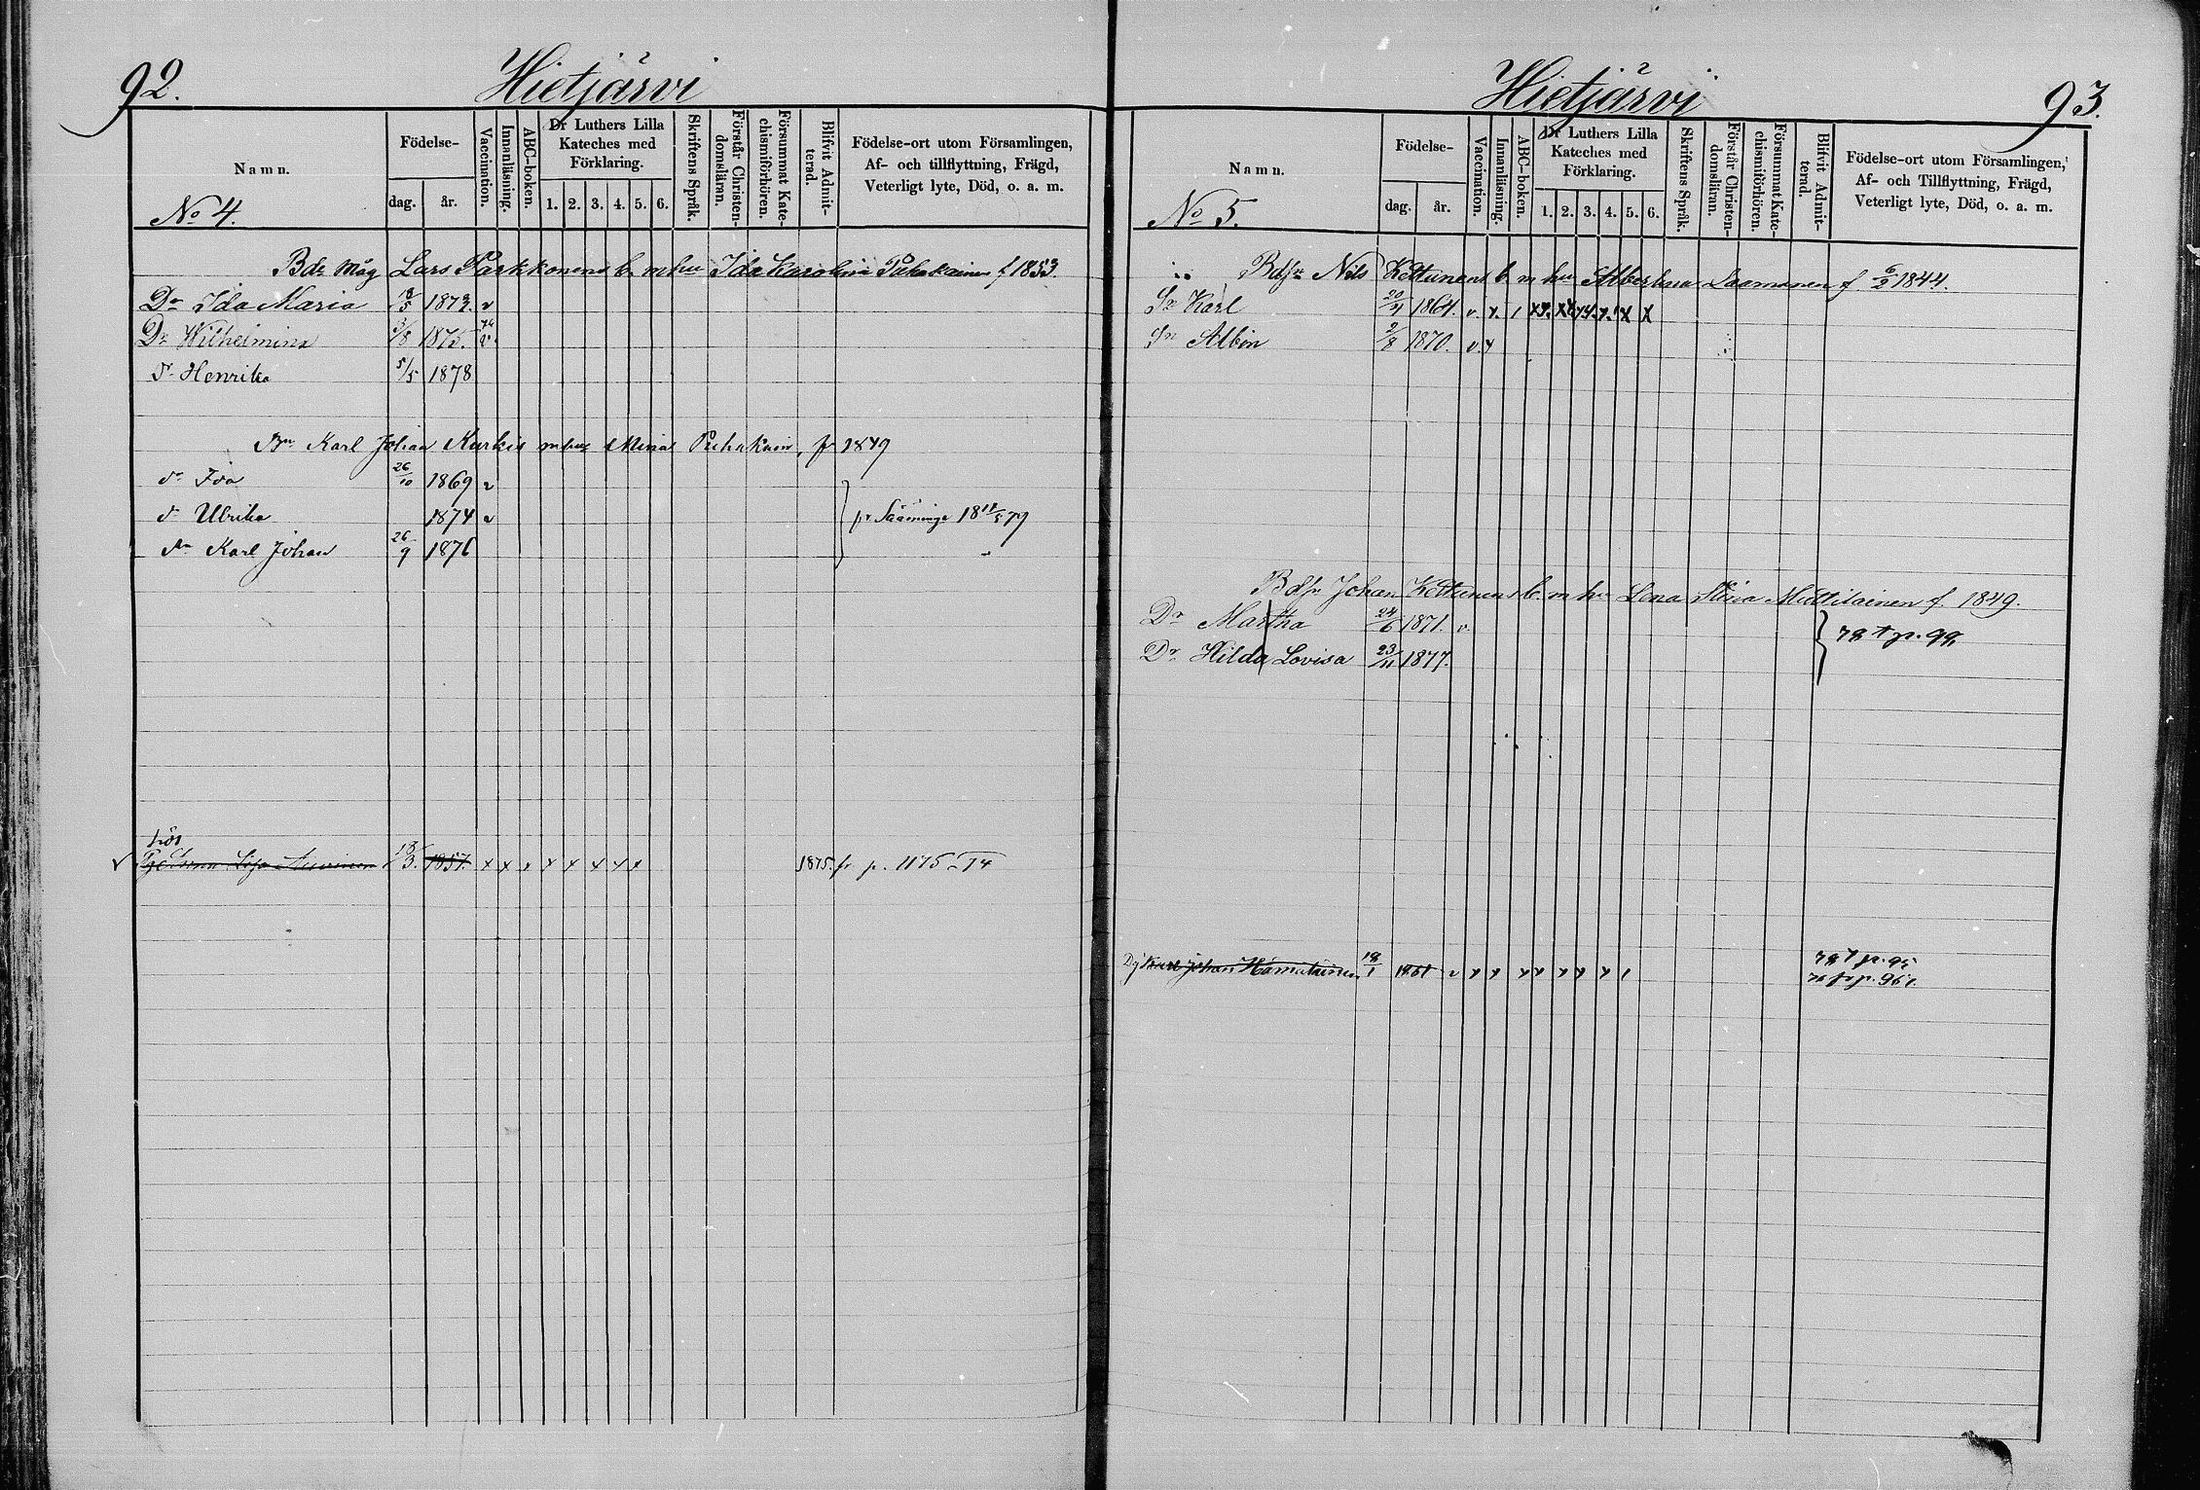 92.
Hietjärvi
Namn.
Födelse-
dag.
år.
Vaccination.
Innanläsning.
ABC-boken.
Dr Luthers Lilla
Kateches med
Förklaring.
1. 2. 3. 4. 5. 6.
Skriftens Språk.
Förstår Christen-
domsläran.
Försummat Kate-
chismiförhören.
Blifvit Admit-
terad.
Födelse-ort utom Församlingen,
Af- och tillflyttning, Frägd,
Veterligt lyte, Död, o. a. m.
No 4.
Bds måg Lars Parkkonens b. m hu Ida Karolina Puhakainen f 1853.
Dr Ida Maria 1873. v
Dr Wilhelmina 3/8 1875. v
Dr Henrika 5/5 1878
Karl Johan Kurkis m hu Mina f 1849
dr Ida 26/10 1869 v
dr Ulrika 1874 v
Karl Johan 26/9 1876
Sääminge 79
1857. x x x x x x x x 1875. fr p. 1175
93.
Hietjärvi
Namn.
Födelse-
dag.
år.
Vaccination.
Innanläsning.
ABC-boken.
Dr Luthers Lilla
Kateches med
Förklaring.
1. 2. 3. 4. 5. 6.
Skriftens Språk.
Förstår Christen-
domsläran.
Försummat Kate-
chismiförhören.
Blifvit Admit-
terad.
Födelse-ort utom Församlingen,
Af- och Tillflyttning, Frägd,
Veterligt lyte, Död, o. a. m.
No 5.
Nils Kettunens b m hu Albertina Laamanen f 6/2 1844.
Sn Karl 1864. v.
Sn Albin 2/8 1870. v.
Johan Kettunens b. m hu Lena Maria Muttilainen f. 1849.
Dr Martha 24/6 1871. v.
Dr Hilda Lovisa 23/11 1877.
78 t p. 99
Karl Johan Hämäläinen 18/1 1861
78 p. 95